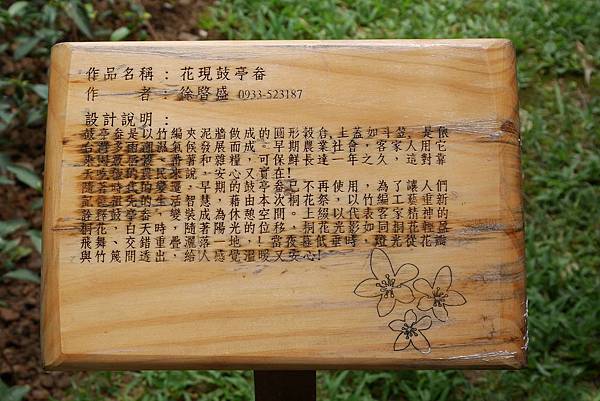 作品名稱：花現鼓亭畚
作　　者：徐暋盛 0933-523187
設計說明：
鼓亭畚是以竹編夾泥牆做成的圓形穀倉,上蓋如斗笠,是依
台灣多雨潮濕氣候發展而成。早期農業社會，客家人用它
來囤農穀、番薯和雜糧，可保鮮長達一年之久，這對靠
天吃飯的農民來說，安心又實在!
隨著時代的變遷，早期的鼓亭畚已不再使用，為了讓人們
記憶祖先的生活智慧，藉由本次桐花祭，以竹編工藝重新
詮釋鼓亭畚，變裝成為休憩空間。上綴以代表客家精神的
桐花，白天時，隨著陽光的位移，桐花光影如同桐花輕盈
飛舞、交錯重疊灑落一地，!當夜幕低垂時，燈光從花瓣
與竹篾間透出，給人感覺溫暖又安心!